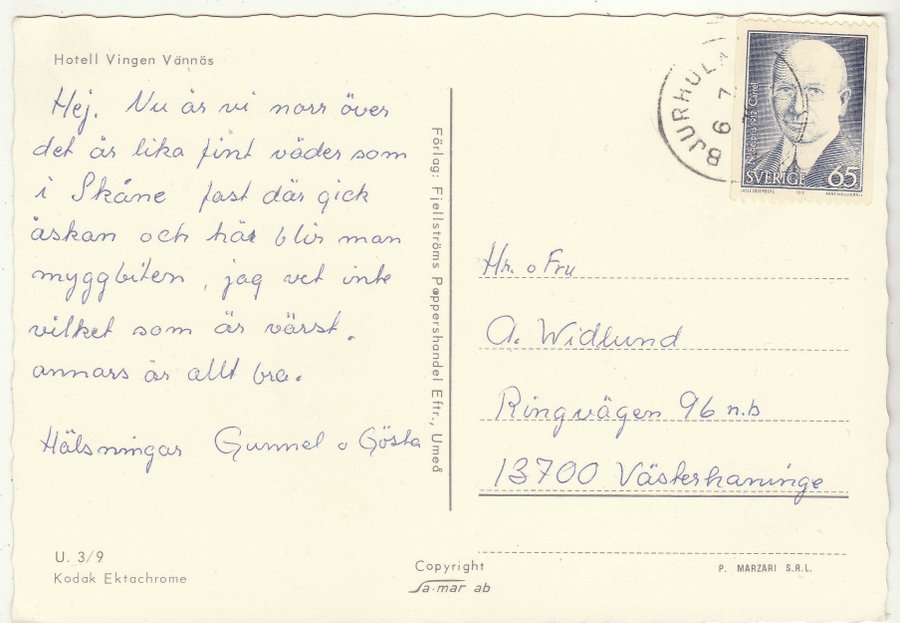 Hotell Vingen Vännäs
Hej. Nu är vi norr över
det är lika fint väder som
i Skåne fast där gick
åskan och här blir man
myggbiten, jag vet inte
vilket som är värst.
annars är allt bra.
Hälsningar Gunnel o Gösta
U. 3/9
Kodak Ektachrome
Förlag: Fjellströms Pappershandel Eftr., Umeå
Copyright
Sa-mar ab
BJURHOL
6 7
SVERIGE 65
Hr. o Fru
A. Widlund
Ringvägen 96 n.b
13700 Västerhaninge
P. MARZARI S.R.L.